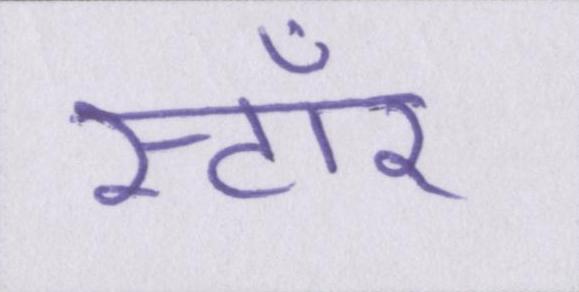 स्टाँर